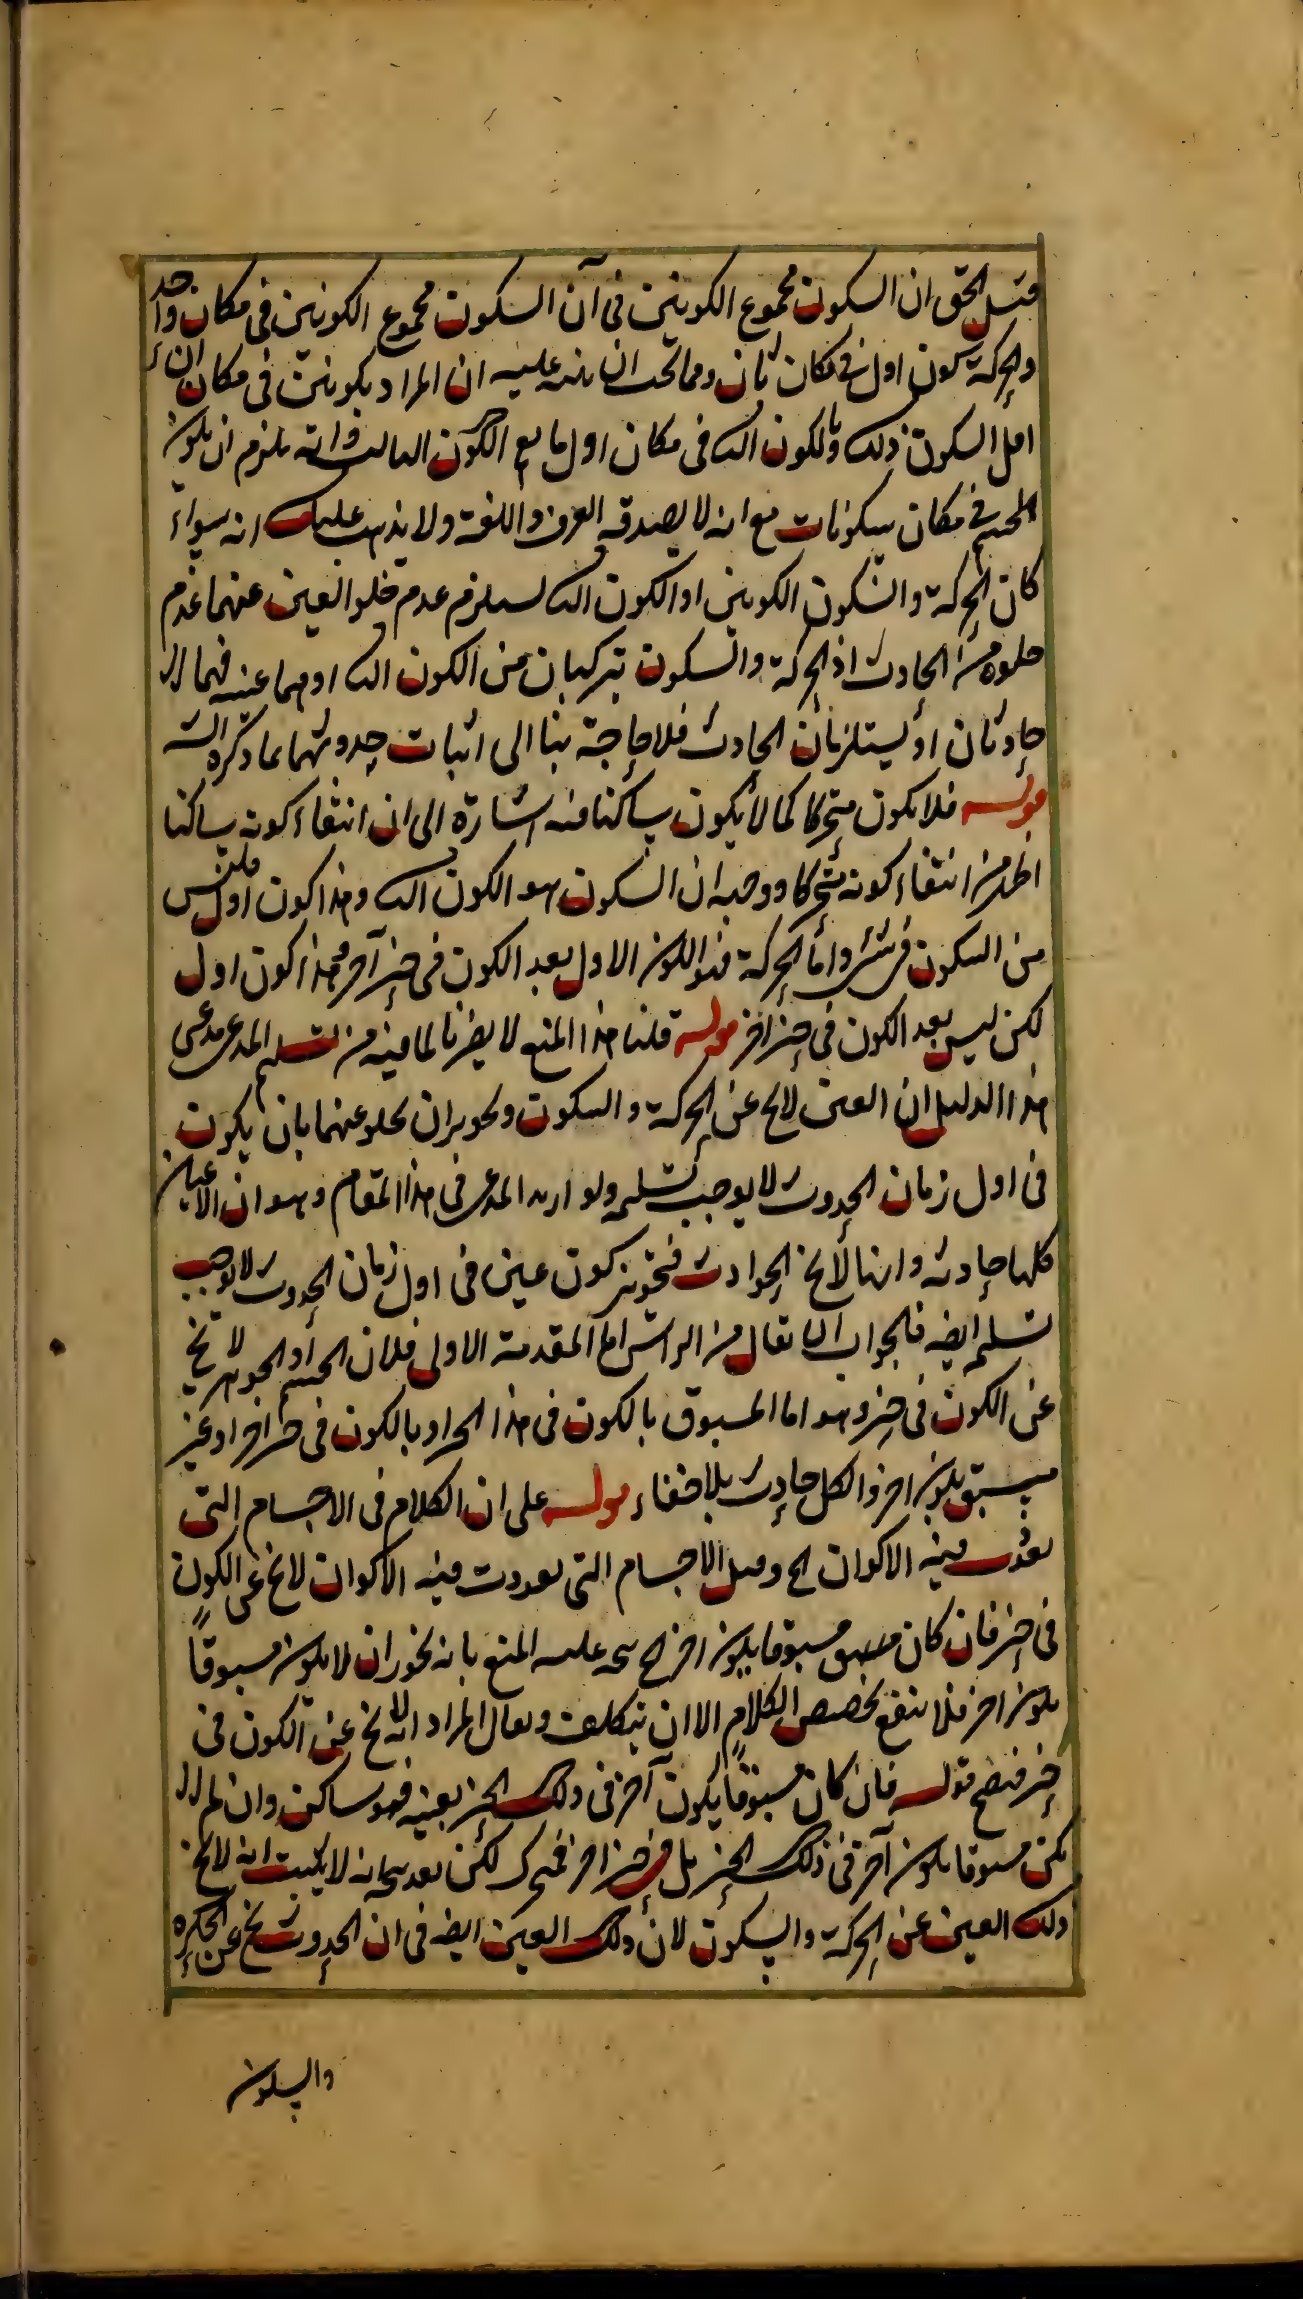 قيل الحق ان السكون مجموع الكونين في آن السكون مجموع الكونين في مكان واحد
والحركة كون اول في مكان ثان ومما يجب ان ينبه عليه ان المراد بكونين في مكان ان
اقل السكون ذلك وبالكون الثا في مكان اول ما يعم الكون الثالث وانه يلزم ان يكون
للجسم في مكان سكونات مع انه لا يصدقه العرف واللغة ولا يذهب عليك انه سواء
كان الحركة والسكون الكونين او الكون الثا يستلزم عدم خلو العين عنهما عدم
خلوه من الحادث اذ الحركة والسكون تركبان من الكون الثا او هما عنه فهما اما
حادثان او يستلزمان الحادث فلا حاجة بنا الى اثبات حدوثهما بما ذكره الش
قوله فلا يكون متحركا كما لا يكون ساكنا فيه اشارة الى ان انتفاء كونه ساكنا
اظهر من انتفاء كونه متحركا ووجه ان السكون هو الكون الثا وهذا كون اول فليس
من السكون في شئ واما الحركة فهو الكون الاول بعد الكون في حيز آخر وهذا كون اول
لكن ليس بعد الكون في حيز آخر قوله قلنا هذا المنع لا يضرنا لما فيه من تسليم المدعى مدعى
هذا الدليل ان العين لا يخ عن الحركة والسكون وتجويز ان يخلو عنهما بان يكون
في اول زمان الحدوث لا يوجب تسليمه ولو اريد المدعى في هذا المقام وهو ان الاعيان
كلها حادثة وانها لا يخ الحوادث فتجويز كون عين في اول زمان الحدوث لا يوجب
تسليمه ايضه فالجواب ان يقال من الراس اما المقدمة الاولى فلان الجسم او الجوهر لا يخ
عن الكون في حيز وهو اما المسبوق بالكون في هذا الحيز او بالكون في حيز آخر او غير
مسبق بكون اخر والكل حادث بلا خفاء قوله على ان الكلام في الاجسام التى
تعددت فيه الاكوان الخ وقيل الاجسام التى تعددت فيه الاكوان لا يخ عن الكون
في حيز فان كان مسبوقا بكون اخر الخ يتجه عليه المنع بانه يجوز ان لا يكون مسبوقاً
بكون اخر فلا ينفع تخصيص الكلام الا ان يتكلف ويقال المراد انه لا يخ عن الكون في
حيز فيصح قوله فان كان مسبوقاً بكون آخر في ذلك الحيز بعينه فهو ساكن وان لم
يكن مسبوقا بكون آخر في ذلك الحيز بل في حيز آخر فمتحرك لكن بعد يتجه انه لا يثبت انه لا يخ
ذلك العين عن الحركة والسكون لان ذلك العين ايضه في ان الحدوث يخ عن الحركة
والسكون